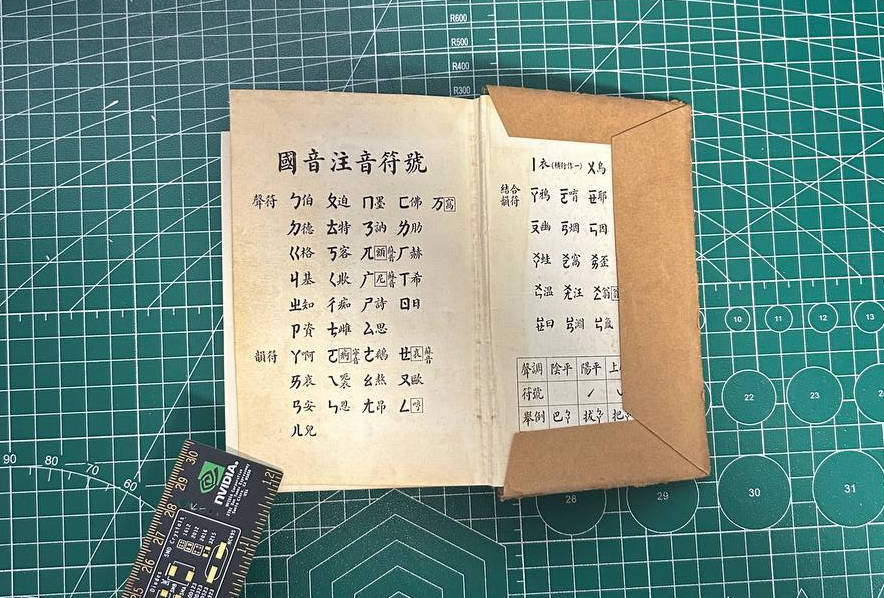 國音注音符號
聲符 ㄅ伯 ㄆ迫 ㄇ墨 ㄈ佛 万
ㄉ德 ㄊ特 ㄋ訥 ㄌ肋
ㄍ格 ㄎ客 ㄫ額蘇音 ㄏ赫
ㄐ基 ㄑ欺 ㄬ尼蘇音 ㄒ希
ㄓ知 ㄔ痴 ㄕ詩 ㄖ日
ㄗ資 ㄘ雌 ㄙ思
韻符 ㄚ啊 ㄛ ㄜ鵝 ㄝ哀蘇音
ㄞ哀 ㄟ ㄠ熬 ㄡ歐
ㄢ安 ㄣ恩 ㄤ昂 ㄥ
ㄦ兒
ㄧ衣(橫行作一) ㄨ烏
結合韻符 ㄧㄚ鴉 ㄧㄛ唷 ㄧㄝ耶
ㄧㄡ幽 ㄧㄢ烟 ㄧㄣ因
ㄨㄚ蛙 ㄨㄛ窩 ㄨㄞ歪
ㄨㄣ温 ㄨㄤ汪 ㄨㄥ翁
ㄩㄝ曰 ㄩㄢ淵 ㄩㄣ
聲調 陰平 陽平 上
符號 ˊ ˇ
舉例 巴ㄅㄚ 拔ㄅㄚˊ 把
R600
R500
R400
R300
10 11 12 13
22 23 24
28 29 30 31
90 80 70 60
NVIDIA
30 29 28 27 26 25
12